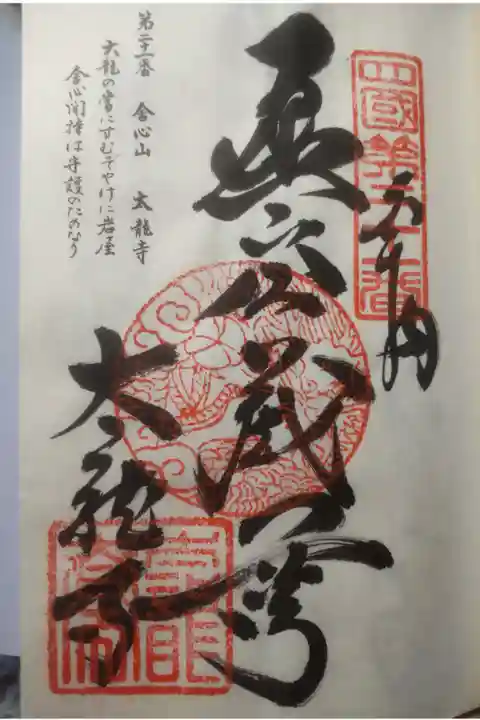 四國第二十一番
奉納
虚空蔵
太龍寺
第二十一番 舎心山 太龍寺
太龍の常にすむぞやげに岩屋
舎心聞持は守護のためなり